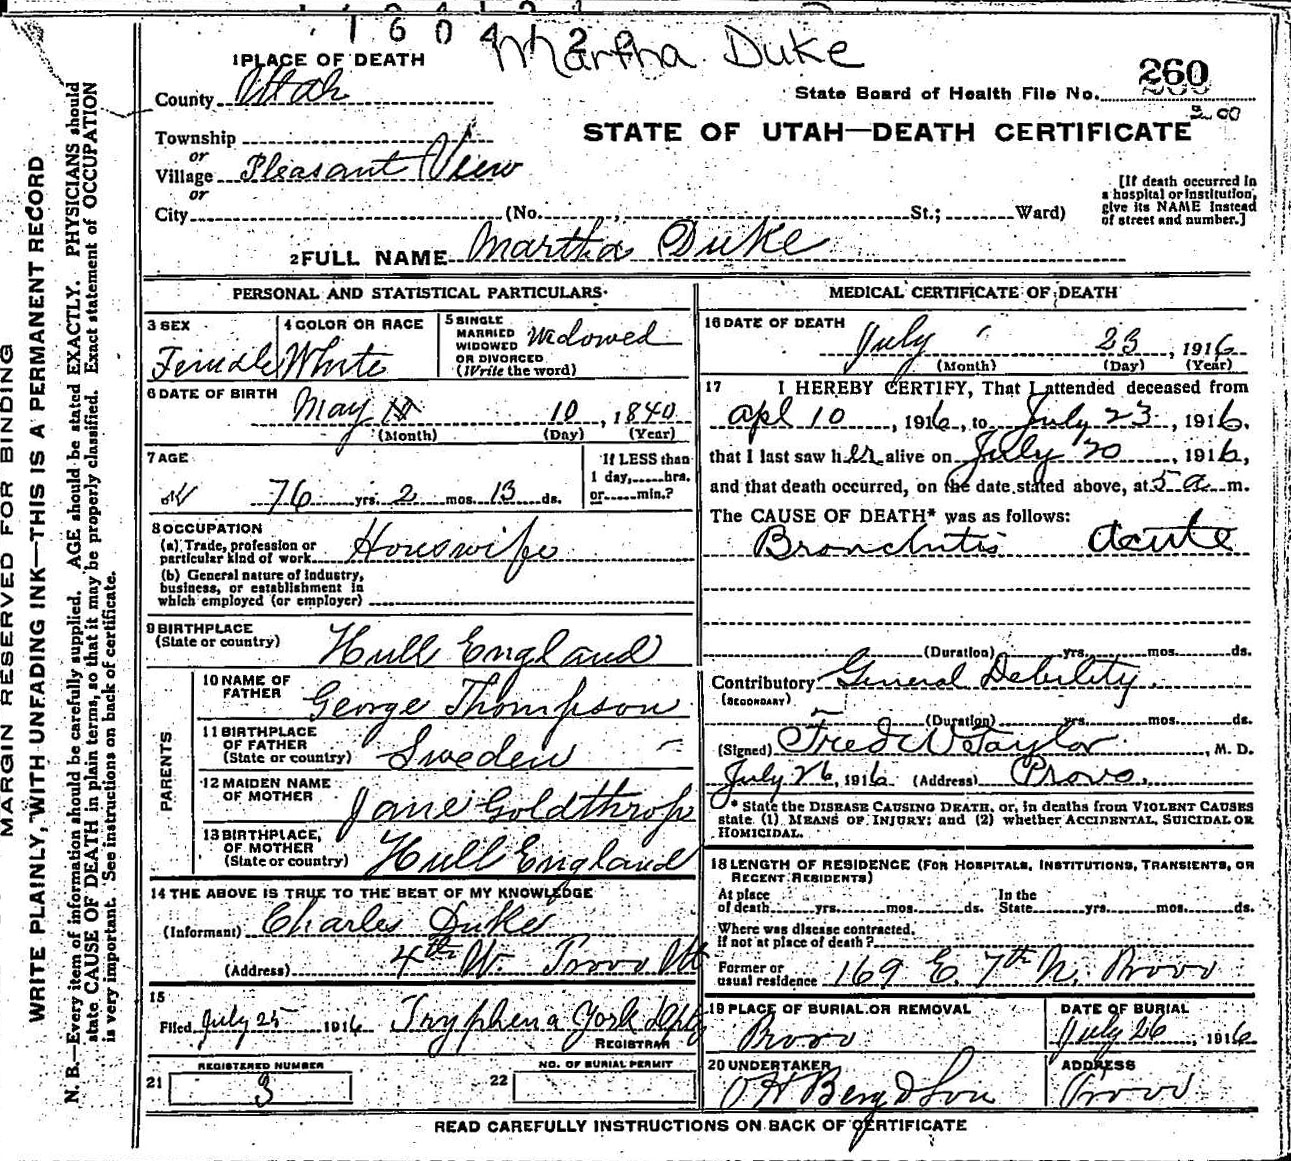 1 6 0 4 2 2
Martha Duke
1 PLACE OF DEATH
County Utah
State Board of Health File No. 260
200
STATE OF UTAH—DEATH CERTIFICATE
Township
or
Village Pleasant View
or
City (No. , St.; Ward)
[If death occurred in a hospital or institution, give its NAME instead of street and number.]
2 FULL NAME Martha Duke
PERSONAL AND STATISTICAL PARTICULARS
3 SEX
Female
4 COLOR OR RACE
White
5 SINGLE
MARRIED
WIDOWED
OR DIVORCED
(Write the word)
Widowed
6 DATE OF BIRTH
May 10, 1840
(Month) (Day) (Year)
7 AGE
76 yrs. 2 mos. 13 ds.
If LESS than
1 day, hrs.
or min.?
8 OCCUPATION
(a) Trade, profession or
particular kind of work Houswife
(b) General nature of industry,
business, or establishment in
which employed (or employer)
9 BIRTHPLACE
(State or country) Hull England
PARENTS
10 NAME OF
FATHER George Thompson
11 BIRTHPLACE
OF FATHER
(State or country) Sweden
12 MAIDEN NAME
OF MOTHER Jane Goldthrop
13 BIRTHPLACE
OF MOTHER
(State or country) Hull England
14 THE ABOVE IS TRUE TO THE BEST OF MY KNOWLEDGE
(Informant) Charles Duke
(Address) 4th W. Provo Ut
15
Filed July 25 1916 Tryphena York Dpty
REGISTRAR
21 REGISTERED NUMBER
3
22 NO. OF BURIAL PERMIT
MEDICAL CERTIFICATE OF DEATH
16 DATE OF DEATH
July 23, 1916
(Month) (Day) (Year)
17 I HEREBY CERTIFY, That I attended deceased from
Apl 10, 1916, to July 23, 1916,
that I last saw her alive on July 20, 1916,
and that death occurred, on the date stated above, at 5 a m.
The CAUSE OF DEATH* was as follows:
Bronchitis Acute
(Duration) yrs. mos. ds.
Contributory General Debility.
(SECONDARY)
(Duration) yrs. mos. ds.
(Signed) Fred W Taylor, M. D.
July 26, 1916 (Address) Provo.
* State the DISEASE CAUSING DEATH, or, in deaths from VIOLENT CAUSES
state (1) MEANS OF INJURY; and (2) whether ACCIDENTAL, SUICIDAL OR
HOMICIDAL.
18 LENGTH OF RESIDENCE (FOR HOSPITALS, INSTITUTIONS, TRANSIENTS, OR
RECENT RESIDENTS)
At place
of death yrs. mos. ds.
In the
State yrs. mos. ds.
Where was disease contracted,
If not at place of death?
Former or
usual residence 169 E. 7th N. Provo
19 PLACE OF BURIAL OR REMOVAL
Provo
DATE OF BURIAL
July 26, 1916
20 UNDERTAKER
O H Berg & Son
ADDRESS
Provo
READ CAREFULLY INSTRUCTIONS ON BACK OF CERTIFICATE
MARGIN RESERVED FOR BINDING
WRITE PLAINLY, WITH UNFADING INK—THIS IS A PERMANENT RECORD
N. B.—Every item of information should be carefully supplied. AGE should be stated EXACTLY. PHYSICIANS should
state CAUSE OF DEATH in plain terms, so that it may be properly classified. Exact statement of OCCUPATION
is very important. See instructions on back of certificate.